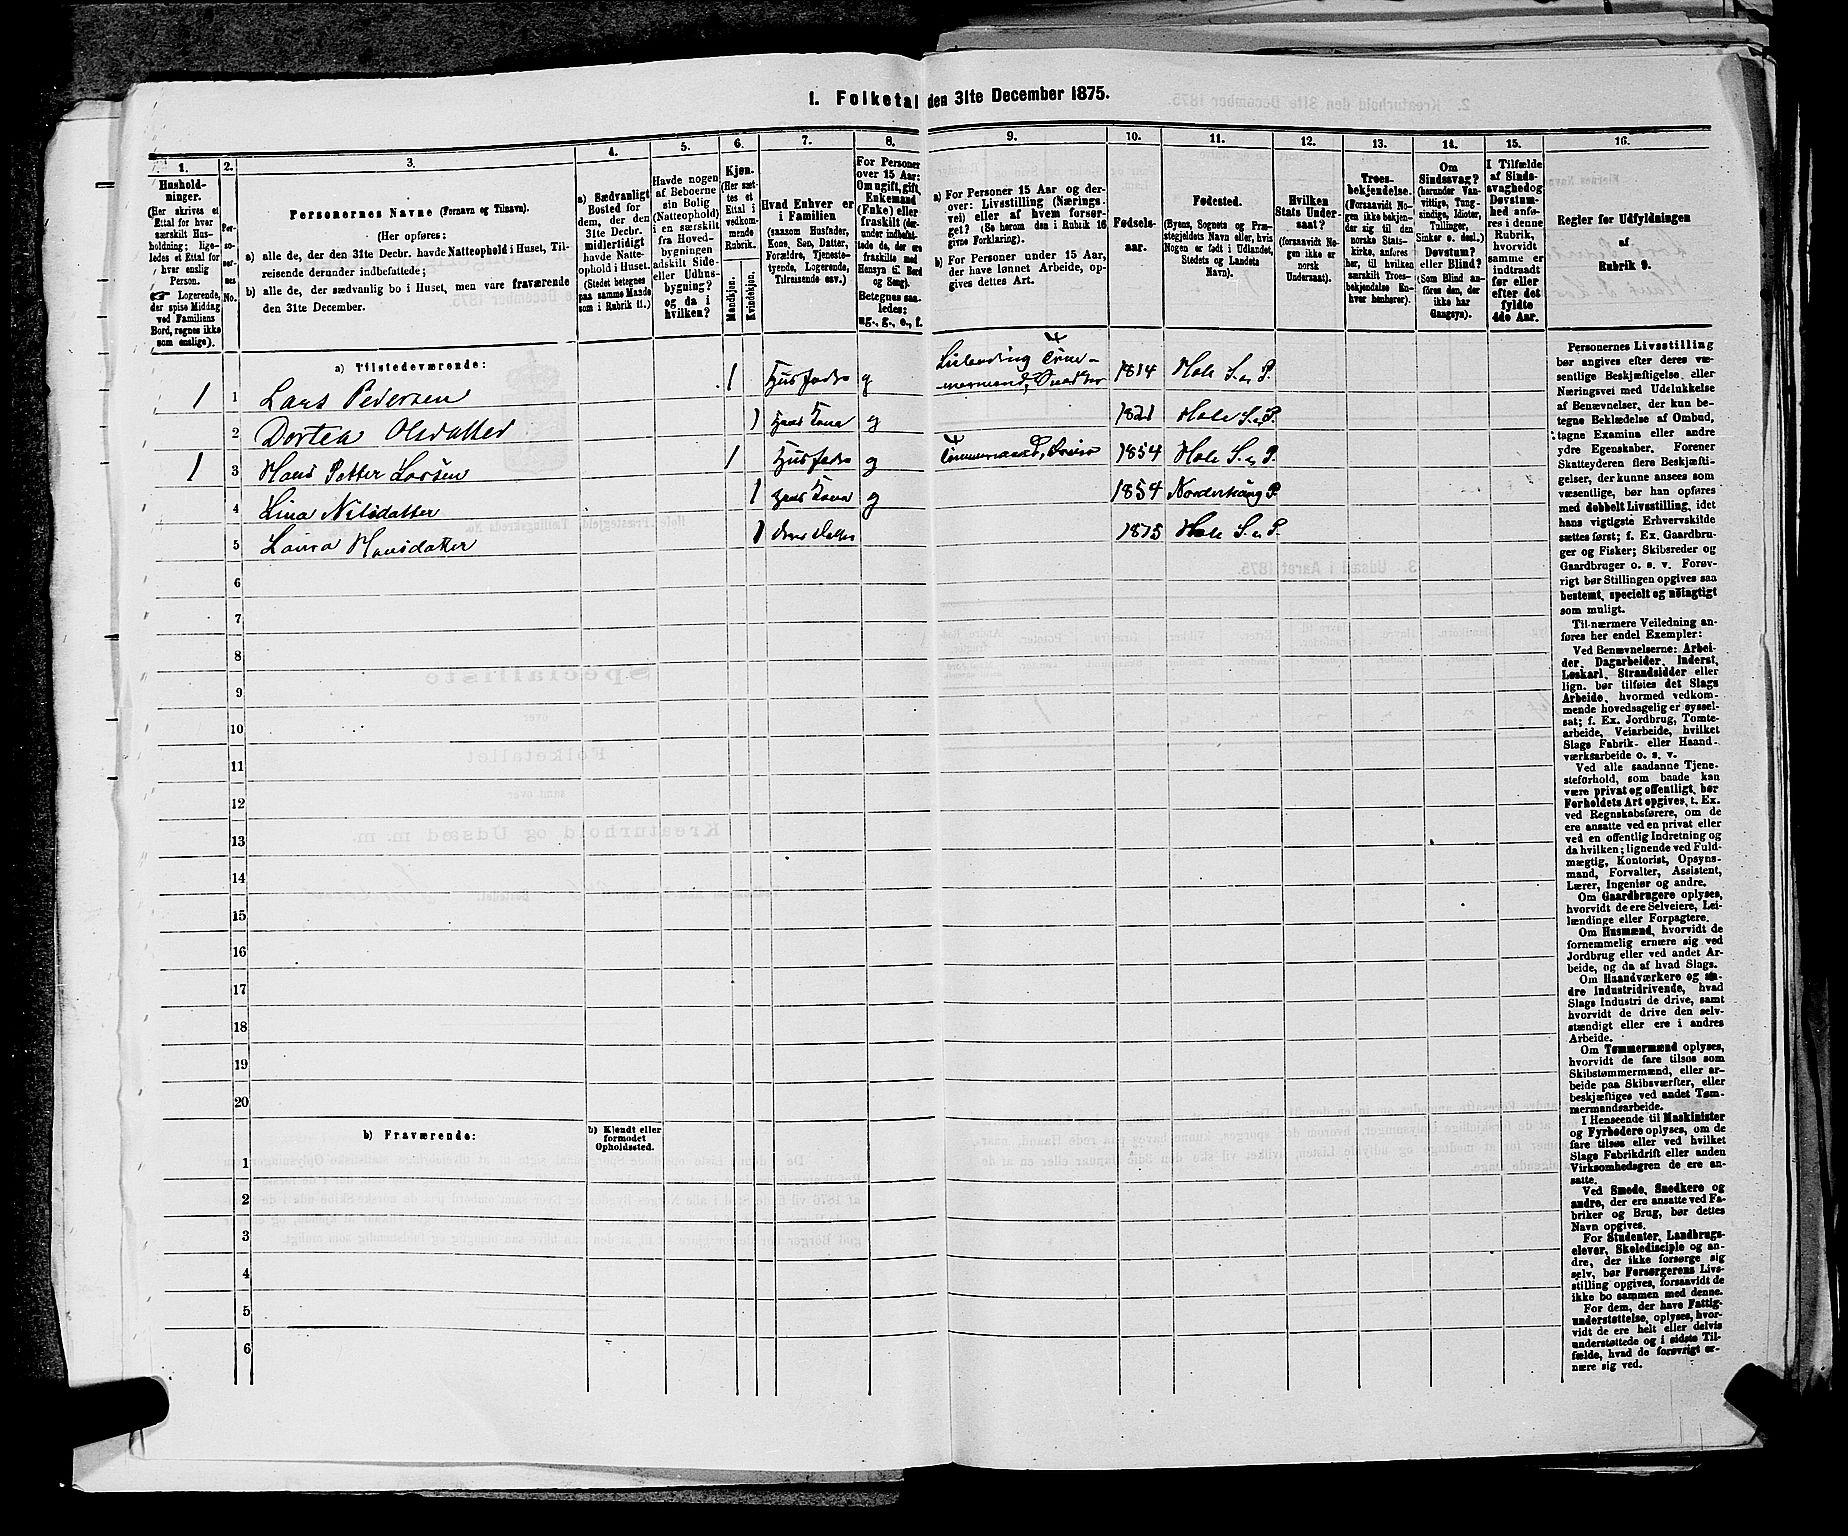 1. Folketal den 31te December 1875.
1. 2. 3. 4. 5. 6. 7. 8. 9. 10. 11. 12. 13. 14. 15. 16.
Hushold-
ninger.
(Her skrives et
Ettal for hver
særskilt Hus-
holdning; lige-
ledes et Ettal for
hver enslig
Person.
☞ Logerende,
der spise Middag
ved Familiens
Bord, regnes ikke
som enslige).
Per-
so-
ner-
nes
No.
Personernes Navne (Fornavn og Tilnavn).
(Her opføres:
a) alle de, der den 31te Decbr. havde Natteophold i Huset, Til-
reisende derunder indbefattede;
b) alle de, der sædvanlig bo i Huset, men vare fraværende
den 31te December.
a) Sædvanligt
Bosted for
dem, der den
31te Decbr.
midlertidigt
havde Natte-
ophold i Huset.
(Stedet betegnes
paa samme Maade
som i Rubrik 11.)
Havde nogen
af Beboerne
sin Bolig
(Natteophold)
i en særskilt
fra Hoved-
bygningen
adskilt Side-
eller Udhus-
bygning?
og da i
hvilken?
Kjøn.
(Her sæt-
tes et
Ettal i
vedkom-
mende
Rubrik.
Mandkjøn.
Kvindekjøn.
Hvad Enhver er
i Familien
(saasom Husfader,
Kone, Søn, Datter,
Forældre, Tjeneste-
tyende, Logerende,
Tilreisende osv.)
For Personer
over 15 Aar:
Om ugift, gift,
Enkemand
(Enke) eller
fraskilt (der-
under indbefat-
tede de, der ere
fraskilte med
Hensyn til Bord
og Seng).
Betegnes saa-
ledes:
ug., g., e., f.
a) For Personer 15 Aar og der-
over: Livsstilling (Nærings-
vei) eller af hvem forsør-
get? (Se herom den i Rubrik 16
givne Forklaring).
b) For Personer under 15 Aar,
der have lønnet Arbeide, op-
gives dettes Art.
Fødsels-
aar.
Fødested.
(Byens, Sognets og Præ-
stegjeldets Navn eller, hvis
Nogen er født i Udlandet,
Stedets og Landets
Navn).
Hvilken
Stats Under-
saat?
(forsaavidt No-
gen ikke er
norsk
Undersaat).
Troes-
bekjendelse.
(Forsaavidt No-
gen ikke bekjen-
der sig til den
norske Stats-
kirke, anføres
her, til hvilken
særskilt Troes-
bekjendelse En-
hver henhører).
Om
Sindssvag?
(herunder Van-
vittige, Tung-
sindige, Idioter,
Tullinger,
Sinker o. desl.)
Døvstum?
eller Blind?
(Som Blind an-
føres den, der
ikke har
Gangsyn).
I Tilfælde
af Sinds-
svaghed og
Døvstum-
hed anfø-
res i denne
Rubrik,
hvorvidt
samme er
indtraadt
før eller
efter det
fyldte
4de Aar.
Regler for Udfyldningen
af
Rubrik 9.
a) Tilstedeværende:
1 1 Lars Pedersen 1 Husfader g Leilending Tøm-
mermand, Snedker 1814 Hole S. & P.
2 Dortea Olsdatter 1 Hans Kona g 1821 Hole S. & P.
1 3 Hans Petter Larsen 1 Husfader g Tømmermand, 1854 Hole S. & P.
4 Lina Nilsdatter 1 Hans Kona g 1854 Norderhaug P.
5 Laura Hansdatter 1 Deres Datter 1875 Hole S. & P.
6
7
8
9
10
11
12
13
14
15
16
17
18
19
20
b) Fraværende:
b) Kjendt eller
formodet
Opholdssted.
1
2
3
4
5
6
Personernes Livsstilling
bør angives efter deres væ-
sentlige Beskjæftigelse eller
Næringsvei med Udelukkelse
af Benævnelser, der kun be-
tegne Beklædelse af Ombud,
tagne Examina eller andre
ydre Egenskaber. Forener
Skatteyderen flere Beskjæfti-
gelser, der kunne ansees som
væsentlige, bør han opføres
med dobbelt Livsstilling, idet
hans vigtigste Erhvervskilde
sættes først; f. Ex. Gaardbru-
ger og Fisker; Skibsreder og
Gaardbruger o. s. v. Forøv-
rigt bør Stillingen opgives saa
bestemt, specielt og nøiagtigt
som muligt.
Til nærmere Veiledning an-
føres her endel Exempler:
Ved Benævnelserne: Arbei-
der, Dagarbeider, Inderst,
Løskarl, Strandsidder eller
lign. bør tilføies det Slags
Arbeide, hvormed vedkom-
mende hovedsagelig er syssel-
sat; f. Ex. Jordbrug, Tomte-
arbeide, Veiarbeide, hvilket
Slags Fabrik- eller Haand-
værksarbeide o. s. v.
Ved alle saadanne Tjene-
steforhold, som baade kan
være privat og offentligt, bør
Forholdets Art opgives, t. Ex.
ved Regnskabsførere, om de
ere ansatte ved en privat eller
ved en offentlig Indretning og
da hvilken; lignende ved Fuld-
mægtig, Kontorist, Opsyns-
mand, Forvalter, Assistent,
Lærer, Ingeniør og andre.
Om Gaardbrugere oplyses,
hvorvidt de ere Selveiere, Lei-
lændinge eller Forpagtere.
Om Husmænd, hvorvidt de
fornemmelig ernære sig ved
Jordbrug eller ved andet Ar-
beide, og da af hvad Slags.
Om Haandværkere og an-
dre Industridrivende, hvad
Slags Industri de drive, samt
hvorvidt de drive den selv-
stændigt eller ere i andres
Arbeide.
Om Tømmermænd oplyses,
hvorvidt de fare tilsøs som
Skibstømmermænd, eller ar-
beide paa Skibsværfter, eller
beskjæftiges ved andet Tøm-
mermandsarbeide.
I Henseende til Maskinister
og Fyrbødere oplyses, om de
fare tilsøs eller ved hvilket
Slags Fabrikdrift eller anden
Virksomhedsgren de ere an-
satte.
Ved Smede, Snedkere og
andre, der ere ansatte ved Fa-
briker og Brug, bør dettes
Navn opgives.
For Studenter, Landbrugs-
elever, Skoledisciple og an-
dre, der ikke forsørge sig
selv, bør Forsørgerens Livs-
stilling opgives, forsaavidt de
ikke bo sammen med denne.
For dem, der have Fattig-
understøttelse, oplyses, hvor-
vidt de ere helt eller delvis
understøttede og i sidste Til-
fælde, hvad de forøvrigt er-
nære sig ved.